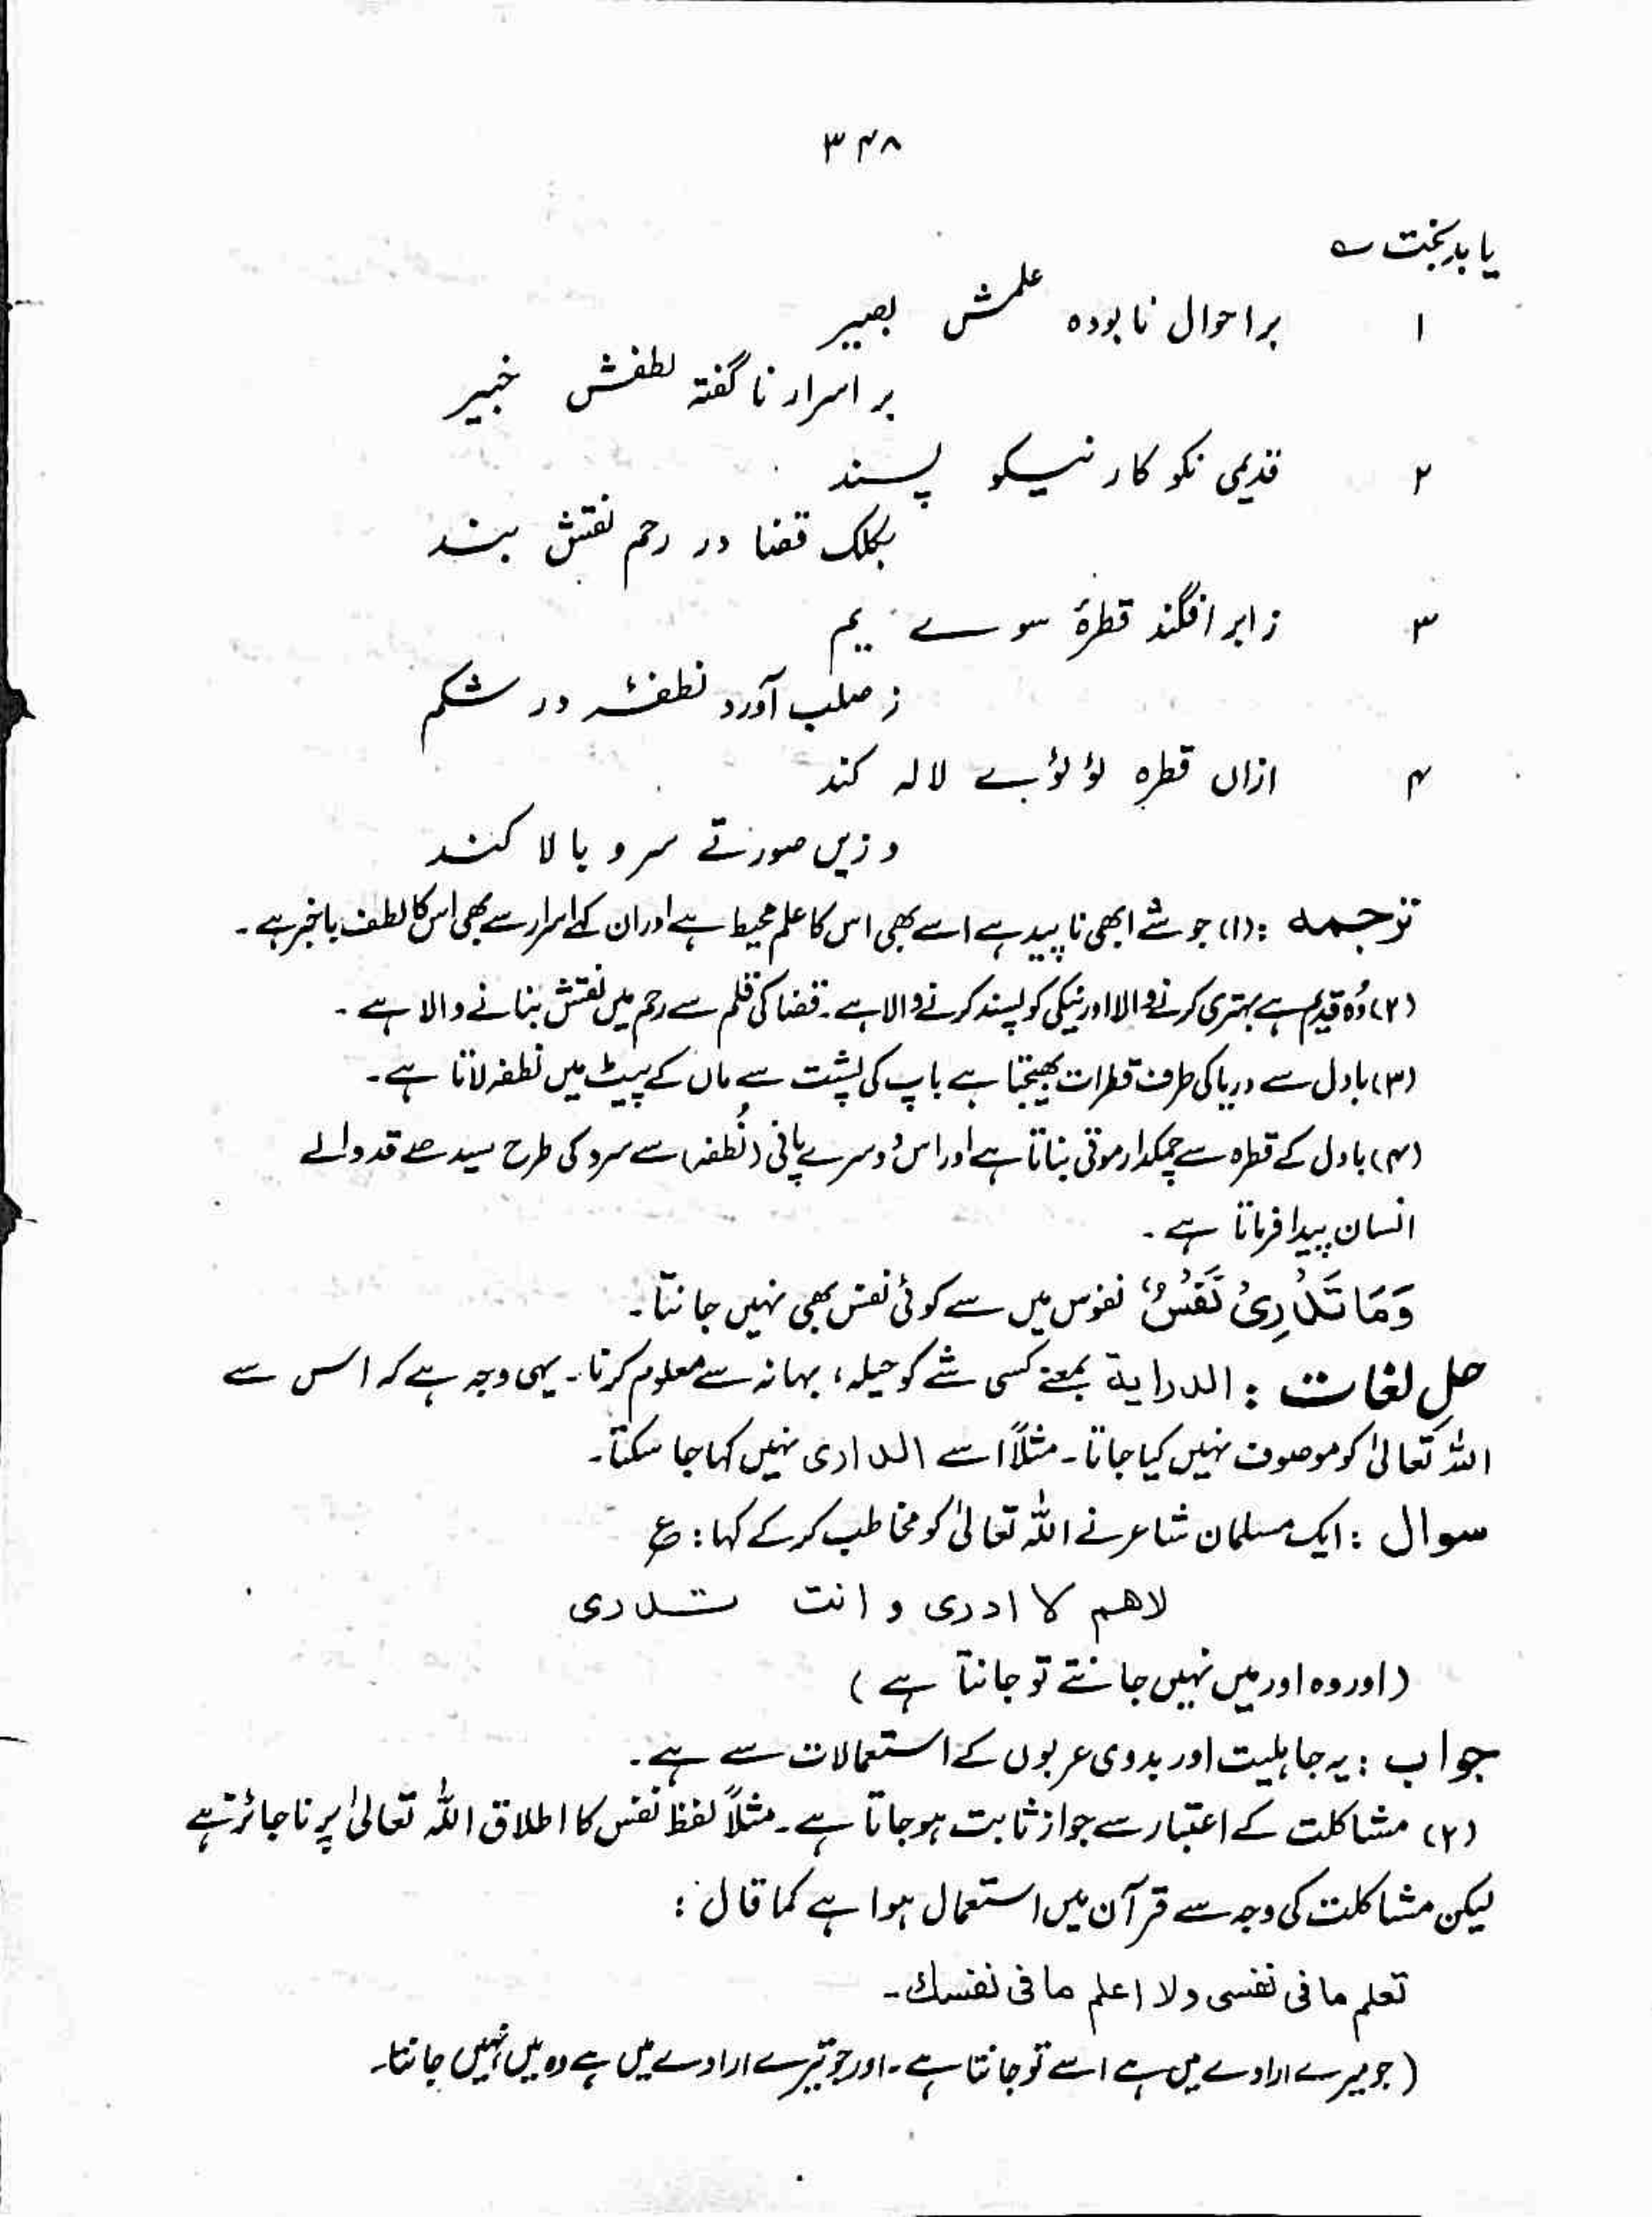 ۳۴۸
یا بدبخت ؎
۱ بر احوال نابوده علمش بصیر
بر اسرار ناگفتہ لطفش خبیر
۲ قدیمی نکو کار نیکو پسند
بکلک قضا در رحم نقش بند
۳ ز ابر افگند قطرۂ سوے یم
ز صلب آورد نطفۂ در شکم
۴ ازاں قطرہ لؤلؤے لالہ کند
وزیں صورتے سرو بالا کند
ترجمہ : (۱) جو شے ابھی ناپید ہے اسے بھی اس کا علم محیط ہے اور ان کہے اسرار سے بھی اس کا لطف باخبر ہے ۔
(۲) وُہ قدیم ہے بہتری کرنے والا اور نیکی کو پسند کرنے والا ہے ۔ قضا کی قلم سے رحم میں نقش بنانے والا ہے ۔
(۳) بادل سے دریا کی طرف قطرات بھیجتا ہے باپ کی پشت سے ماں کے پیٹ میں نطفہ لاتا ہے ۔
(۴) بادل کے قطرہ سے چمکدار موتی بناتا ہے اور اس دُوسرے پانی (نُطفہ) سے سرو کی طرح سیدھے قد والے
انسان پیدا فرماتا ہے ۔
وَمَا تَدْرِیْ نَفْسٌ، نفوس میں سے کوئی نفس بھی نہیں جانتا ۔
حلِ لغات : الدرایة بمعنے کسی شے کو حیلہ، بہانہ سے معلوم کرنا ۔ یہی وجہ ہے کہ اس سے
اللہ تعالیٰ کو موصوف نہیں کیا جاتا ۔ مثلاً اسے الداری نہیں کہا جا سکتا ۔
سوال : ایک مسلمان شاعر نے اللہ تعالیٰ کو مخاطب کر کے کہا : ع
لاھم لا ادری و انت تدری
(اور وہ اور میں نہیں جانتے تو جانتا ہے )
جواب : یہ جاہلیت اور بدوی عربوں کے استعمالات سے ہے ۔
(۲) مشاکلت کے اعتبار سے جواز ثابت ہو جاتا ہے ۔ مثلاً لفظ نفس کا اطلاق اللہ تعالیٰ پر ناجائز ہے
لیکن مشاکلت کی وجہ سے قرآن میں استعمال ہوا ہے کما قال :
تعلم ما فی نفسی ولا اعلم ما فی نفسك ۔
(جو میرے ارادے میں ہے اسے تو جانتا ہے ۔ اور جو تیرے ارادے میں ہے وہ میں نہیں جانتا ۔